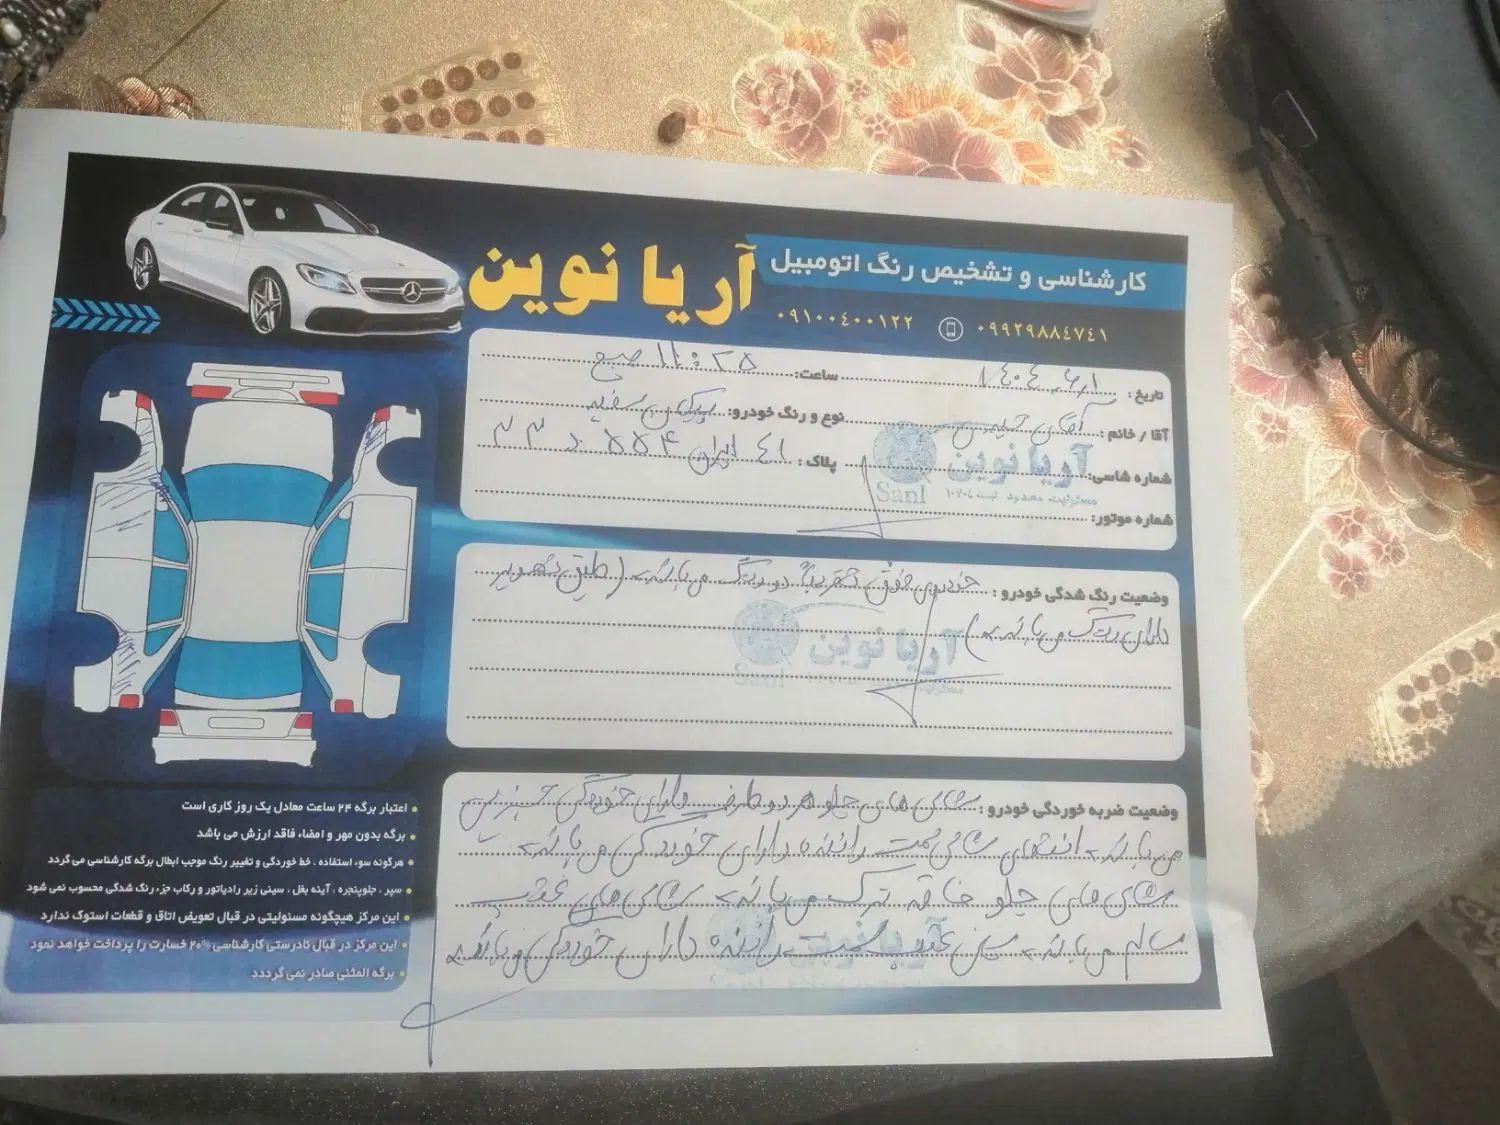 کارشناسی و تشخیص رنگ اتومبیل
آریا نوین
۰۹۹۲۹۸۸۴۷۴۱
۰۹۱۰۰۴۰۰۱۲۲
تاریخ :
ساعت: ۱۱:۲۵ صبح
آقا / خانم : آقای
نوع و رنگ خودرو: سفید
شماره شاسی:
پلاک :
شماره موتور:
آریا نوین
Sanl
مسئولیت محدود ثبت ۱۰۷۰۴
وضعیت رنگ شدگی خودرو : خودروی فوق دور رنگ می باشد (طبق تصویر
دارای رنگ می باشد)
آریا نوین
Sanl
وضعیت ضربه خوردگی خودرو : شاسی های جلو هر دو طرف دارای خوردگی جزئی
می باشد انتهای شاسی سمت راننده دارای خوردگی می باشد
شاسی های جلو می باشد شاسی های عقب
سالم می باشد سینی عقب سمت راننده دارای خوردگی می باشد
آریا نوین
اعتبار برگه ۲۴ ساعت معادل یک روز کاری است
برگه بدون مهر و امضاء فاقد ارزش می باشد
هرگونه سوء استفاده ، خط خوردگی و تغییر رنگ موجب ابطال برگه کارشناسی می گردد
سپر ، جلوپنجره ، آینه بغل ، سینی زیر رادیاتور و رکاب جزء رنگ شدگی محسوب نمی شود
این مرکز هیچگونه مسئولیتی در قبال تعویض اتاق و قطعات استوک ندارد
این مرکز در قبال نادرستی کارشناسی ۲۰% خسارت را پرداخت خواهد نمود
برگه المثنی صادر نمی گرددد